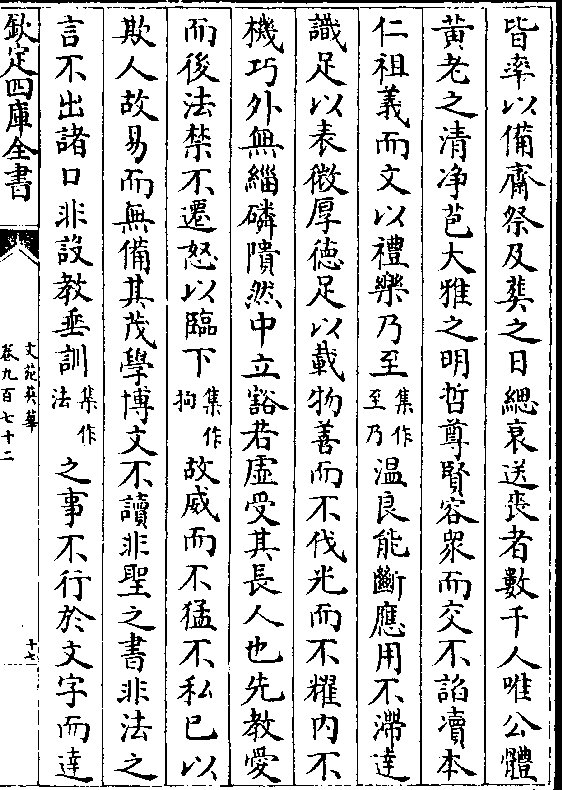 皆率以備齋祭及葬之日緦衰送喪者數千人唯公體
黃老之清净苞大雅之明哲尊賢容衆而交不諂凟本
仁祖義而文以禮樂乃至集作至乃温良能斷應用不滯達
識足以表微厚徳足以載物善而不伐光而不耀内不
機巧外無緇磷隤然中立豁若虚受其長人也先教愛
而後法禁不遷怒以臨下集作狥故威而不猛不私已以
欺人故易而無備其茂學博文不讀非聖之書非法之
言不出諸口非設教垂訓集作法之事不行於文字而達
欽定四庫全書
文苑英華
卷九百七十二
十七